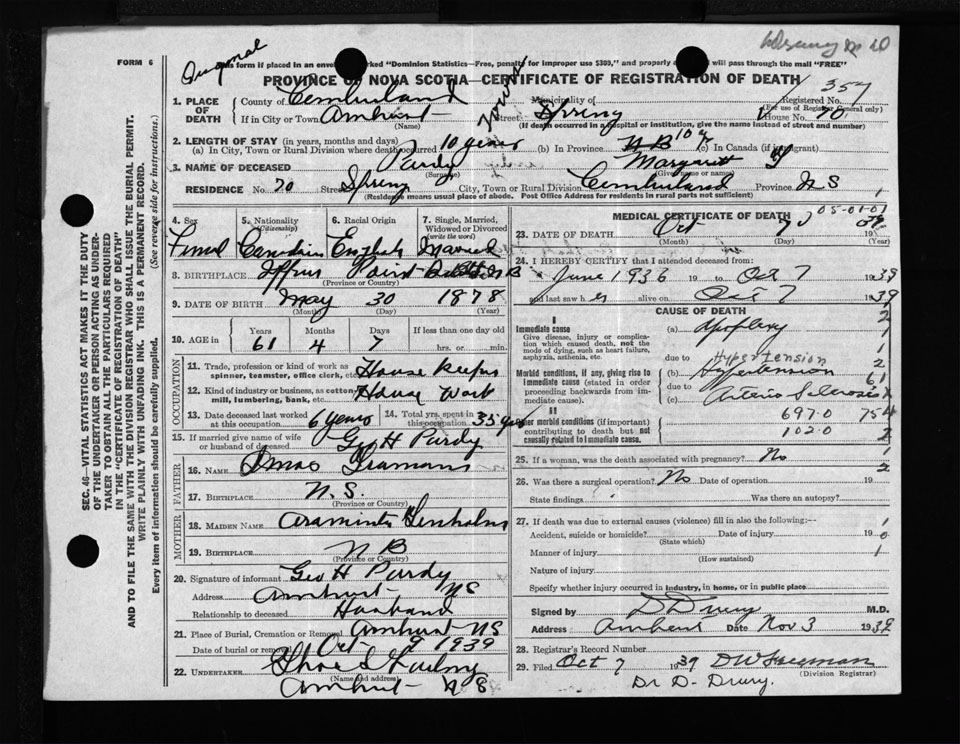 Original
FORM 6
This form if placed in an envelope marked "Dominion Statistics—Free, penalty for improper use $300," and properly addressed will pass through the mail "FREE"
PROVINCE OF NOVA SCOTIA—CERTIFICATE OF REGISTRATION OF DEATH
1. PLACE OF DEATH County of Cumberland Municipality of Registered No. 357
(For use of Registrar General only)
If in City or Town Amherst Street Spring House No. 70
(Name) (If death occurred in a hospital or institution, give the name instead of street and number)
2. LENGTH OF STAY (in years, months and days)
(a) In City, Town or Rural Division where death occurred 10 years (b) In Province NB 10 y (c) In Canada (if immigrant)
3. NAME OF DECEASED Purdy Margaret
(Surname) (Given name or names)
RESIDENCE No. 70 Street Spring City, Town or Rural Division Cumberland Province NS
(Residence means usual place of abode. Post Office Address for residents in rural parts not sufficient)
4. Sex 5. Nationality (Citizenship) 6. Racial Origin 7. Single, Married, Widowed or Divorced (write the word)
Femal Canadian English Married
8. BIRTHPLACE Point NB
(Province or Country)
9. DATE OF BIRTH May 30 1878
(Month) (Day) (Year)
10. AGE in Years Months Days If less than one day old
61 4 7 hrs. or min.
OCCUPATION
11. Trade, profession or kind of work as spinner, teamster, office clerk, etc. House keeper
12. Kind of industry or business, as cotton mill, lumbering, bank, etc. House Work
13. Date deceased last worked at this occupation 6 years 14. Total yrs. spent in this occupation 35 years
15. If married give name of wife or husband of deceased Geo H Purdy
FATHER
16. NAME
17. BIRTHPLACE N.S.
(Province or Country)
MOTHER
18. MAIDEN NAME Araminta
19. BIRTHPLACE NB
(Province or Country)
20. Signature of informant Geo H Purdy
Address Amherst NS
Relationship to deceased Husband
21. Place of Burial, Cremation or Removal Amherst NS
Date of burial or removal Oct 9 1939
22. UNDERTAKER
(Name and address)
Amherst NS
MEDICAL CERTIFICATE OF DEATH
05-01-01
23. DATE OF DEATH Oct 7
(Month) (Day) (Year)
24. I HEREBY CERTIFY that I attended deceased from:
June 1936 19 to Oct 7 1939
and last saw h er alive on Oct 7 1939
CAUSE OF DEATH
I
Immediate cause (a) Apoplexy
Give disease, injury or complication which caused death, not the mode of dying, such as heart failure, asphyxia, asthenia, etc.
due to Hypertension
Morbid conditions, if any, giving rise to immediate cause (stated in order proceeding backwards from immediate cause). (b) Hypertension
due to
(c) Arterio Sclerosis
II
Other morbid conditions (if important) contributing to death but not causally related to immediate cause.
697.0 754
102.0
25. If a woman, was the death associated with pregnancy? No
26. Was there a surgical operation? No Date of operation 19
State findings Was there an autopsy?
27. If death was due to external causes (violence) fill in also the following:—
Accident, suicide or homicide? Date of injury 19
(State which)
Manner of injury
(How sustained)
Nature of injury
Specify whether injury occurred in industry, in home, or in public place
Signed by D Drury M.D.
Address Amherst Date Nov 3 1939
28. Registrar's Record Number
29. Filed Oct 7 1939 DW Freeman
(Division Registrar)
Dr D. Drury.
SEC. 46—VITAL STATISTICS ACT MAKES IT THE DUTY
OF THE UNDERTAKER OR PERSON ACTING AS UNDER-
TAKER TO OBTAIN ALL THE PARTICULARS REQUIRED
IN THE "CERTIFICATE OF REGISTRATION OF DEATH"
AND TO FILE THE SAME WITH THE DIVISION REGISTRAR WHO SHALL ISSUE THE BURIAL PERMIT.
WRITE PLAINLY WITH UNFADING INK. THIS IS A PERMANENT RECORD.
Every item of information should be carefully supplied. (See reverse side for instructions.)